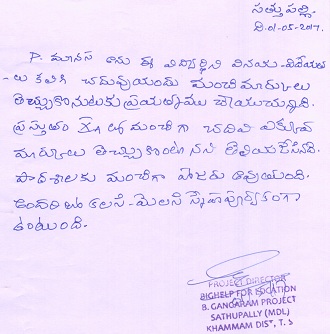 సత్తుపల్లి.
ది.01-05-2017.
P. మానస అను ఈ విద్యార్థిని వినయ-విదేయత
-లు కలిగి చదువుయందు మంచిమార్కులు
తెచ్చుకొనుటకు ప్రయత్నము చేయుచున్నది.
ప్రస్తుతం లో మంచిగా చదివి ఎక్కువ
మార్కులు తెచ్చుకుంటానని తెలియజేసినది.
పాఠశాలకు మంచిగా హాజరు అవుయింది.
అందరితో కలసి-మెలసి స్నేహపూర్వకంగా
ఉంటుంది.
PROJECT DIRECTOR
BIGHELP FOR EDUCATION
B. GANGARAM PROJECT
SATHUPALLY (MDL)
KHAMMAM DIST, T. S